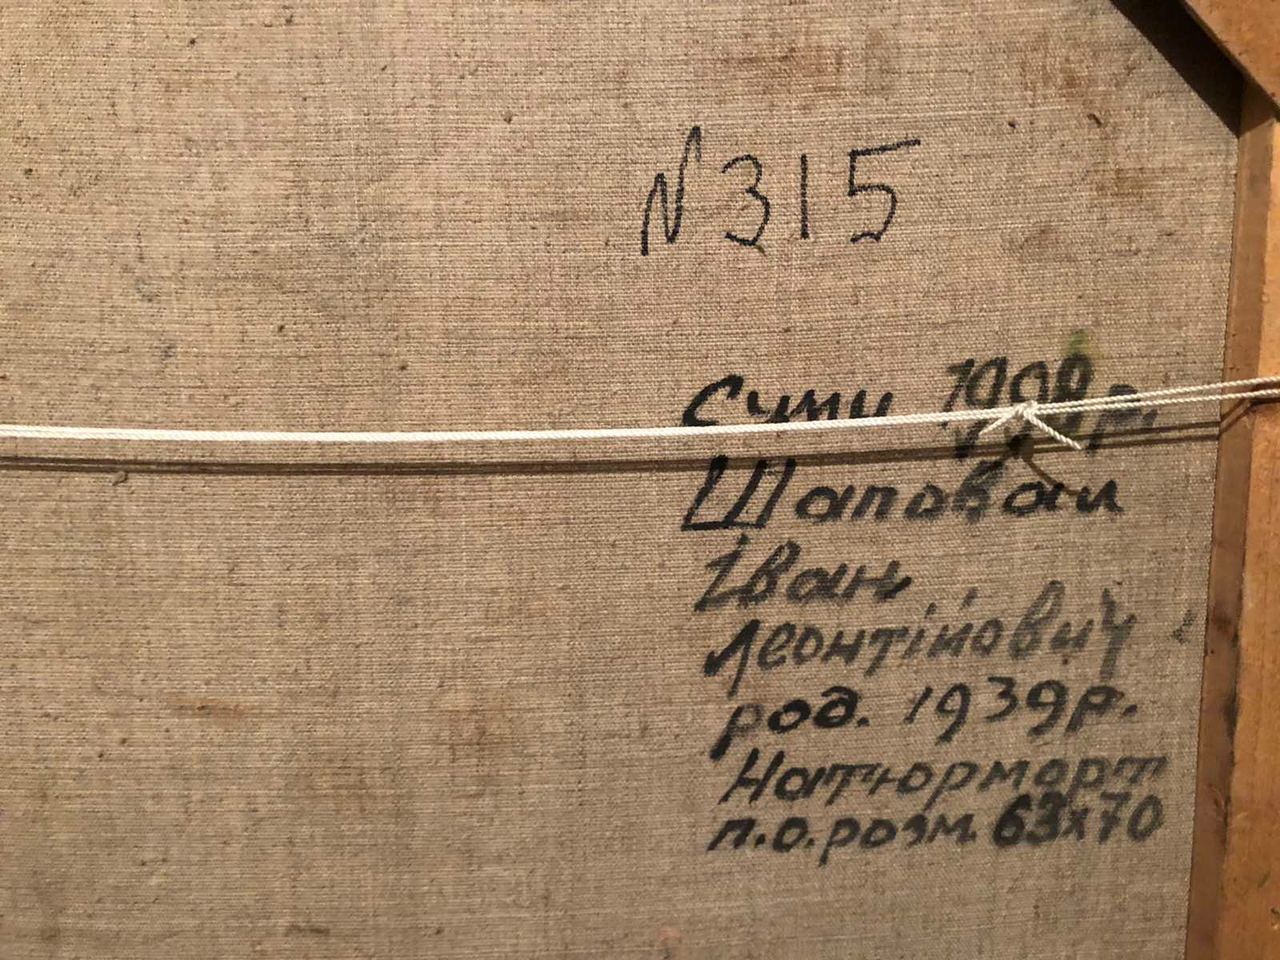 N 315
Суми 1998 р.
Шаповал
Іван
Леонтійович
род. 1939р.
Натюрморт
п.о. розм. 63х70